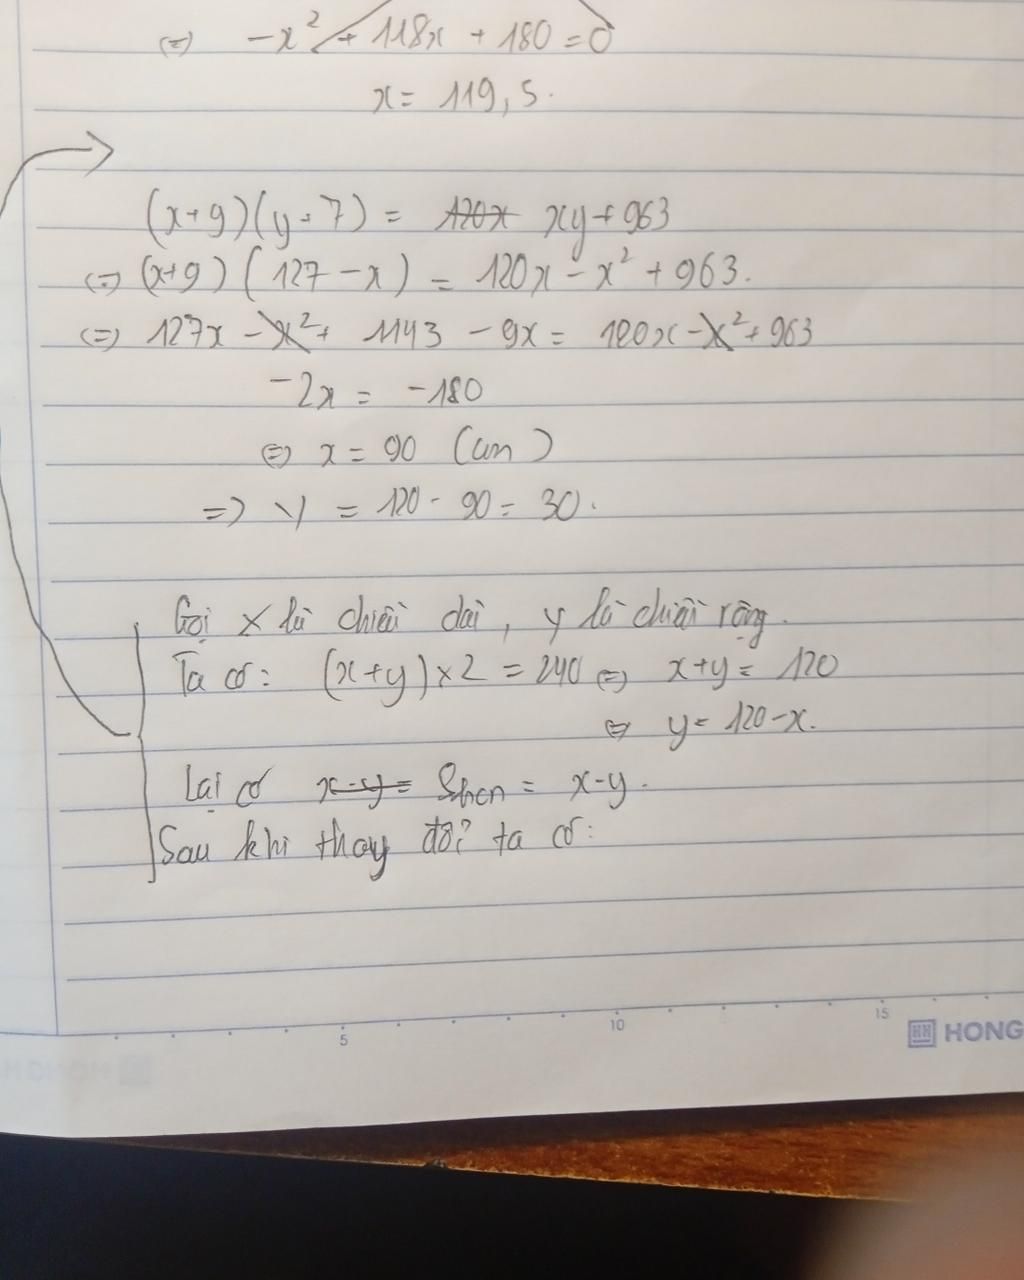 (=) -x² + 118x + 180 = 0
x = 119,5.
(x+9)(y+7) = 120x xy + 963
(=) (x+9) (127 - x) = 120x - x² + 963.
(=) 127x - x² + 1143 - 9x = 120x - x² + 963
-2x = -180
(=) x = 90 (cm)
=) y = 120 - 90 = 30.
Gọi x là chiều dài, y là chiều rộng.
Ta có: (x+y) × 2 = 240 (=) x+y = 120
(=) y = 120 - x.
Lại có x-y = Shcn = x-y.
Sau khi thay đổi ta có:
5 10 15
HONG